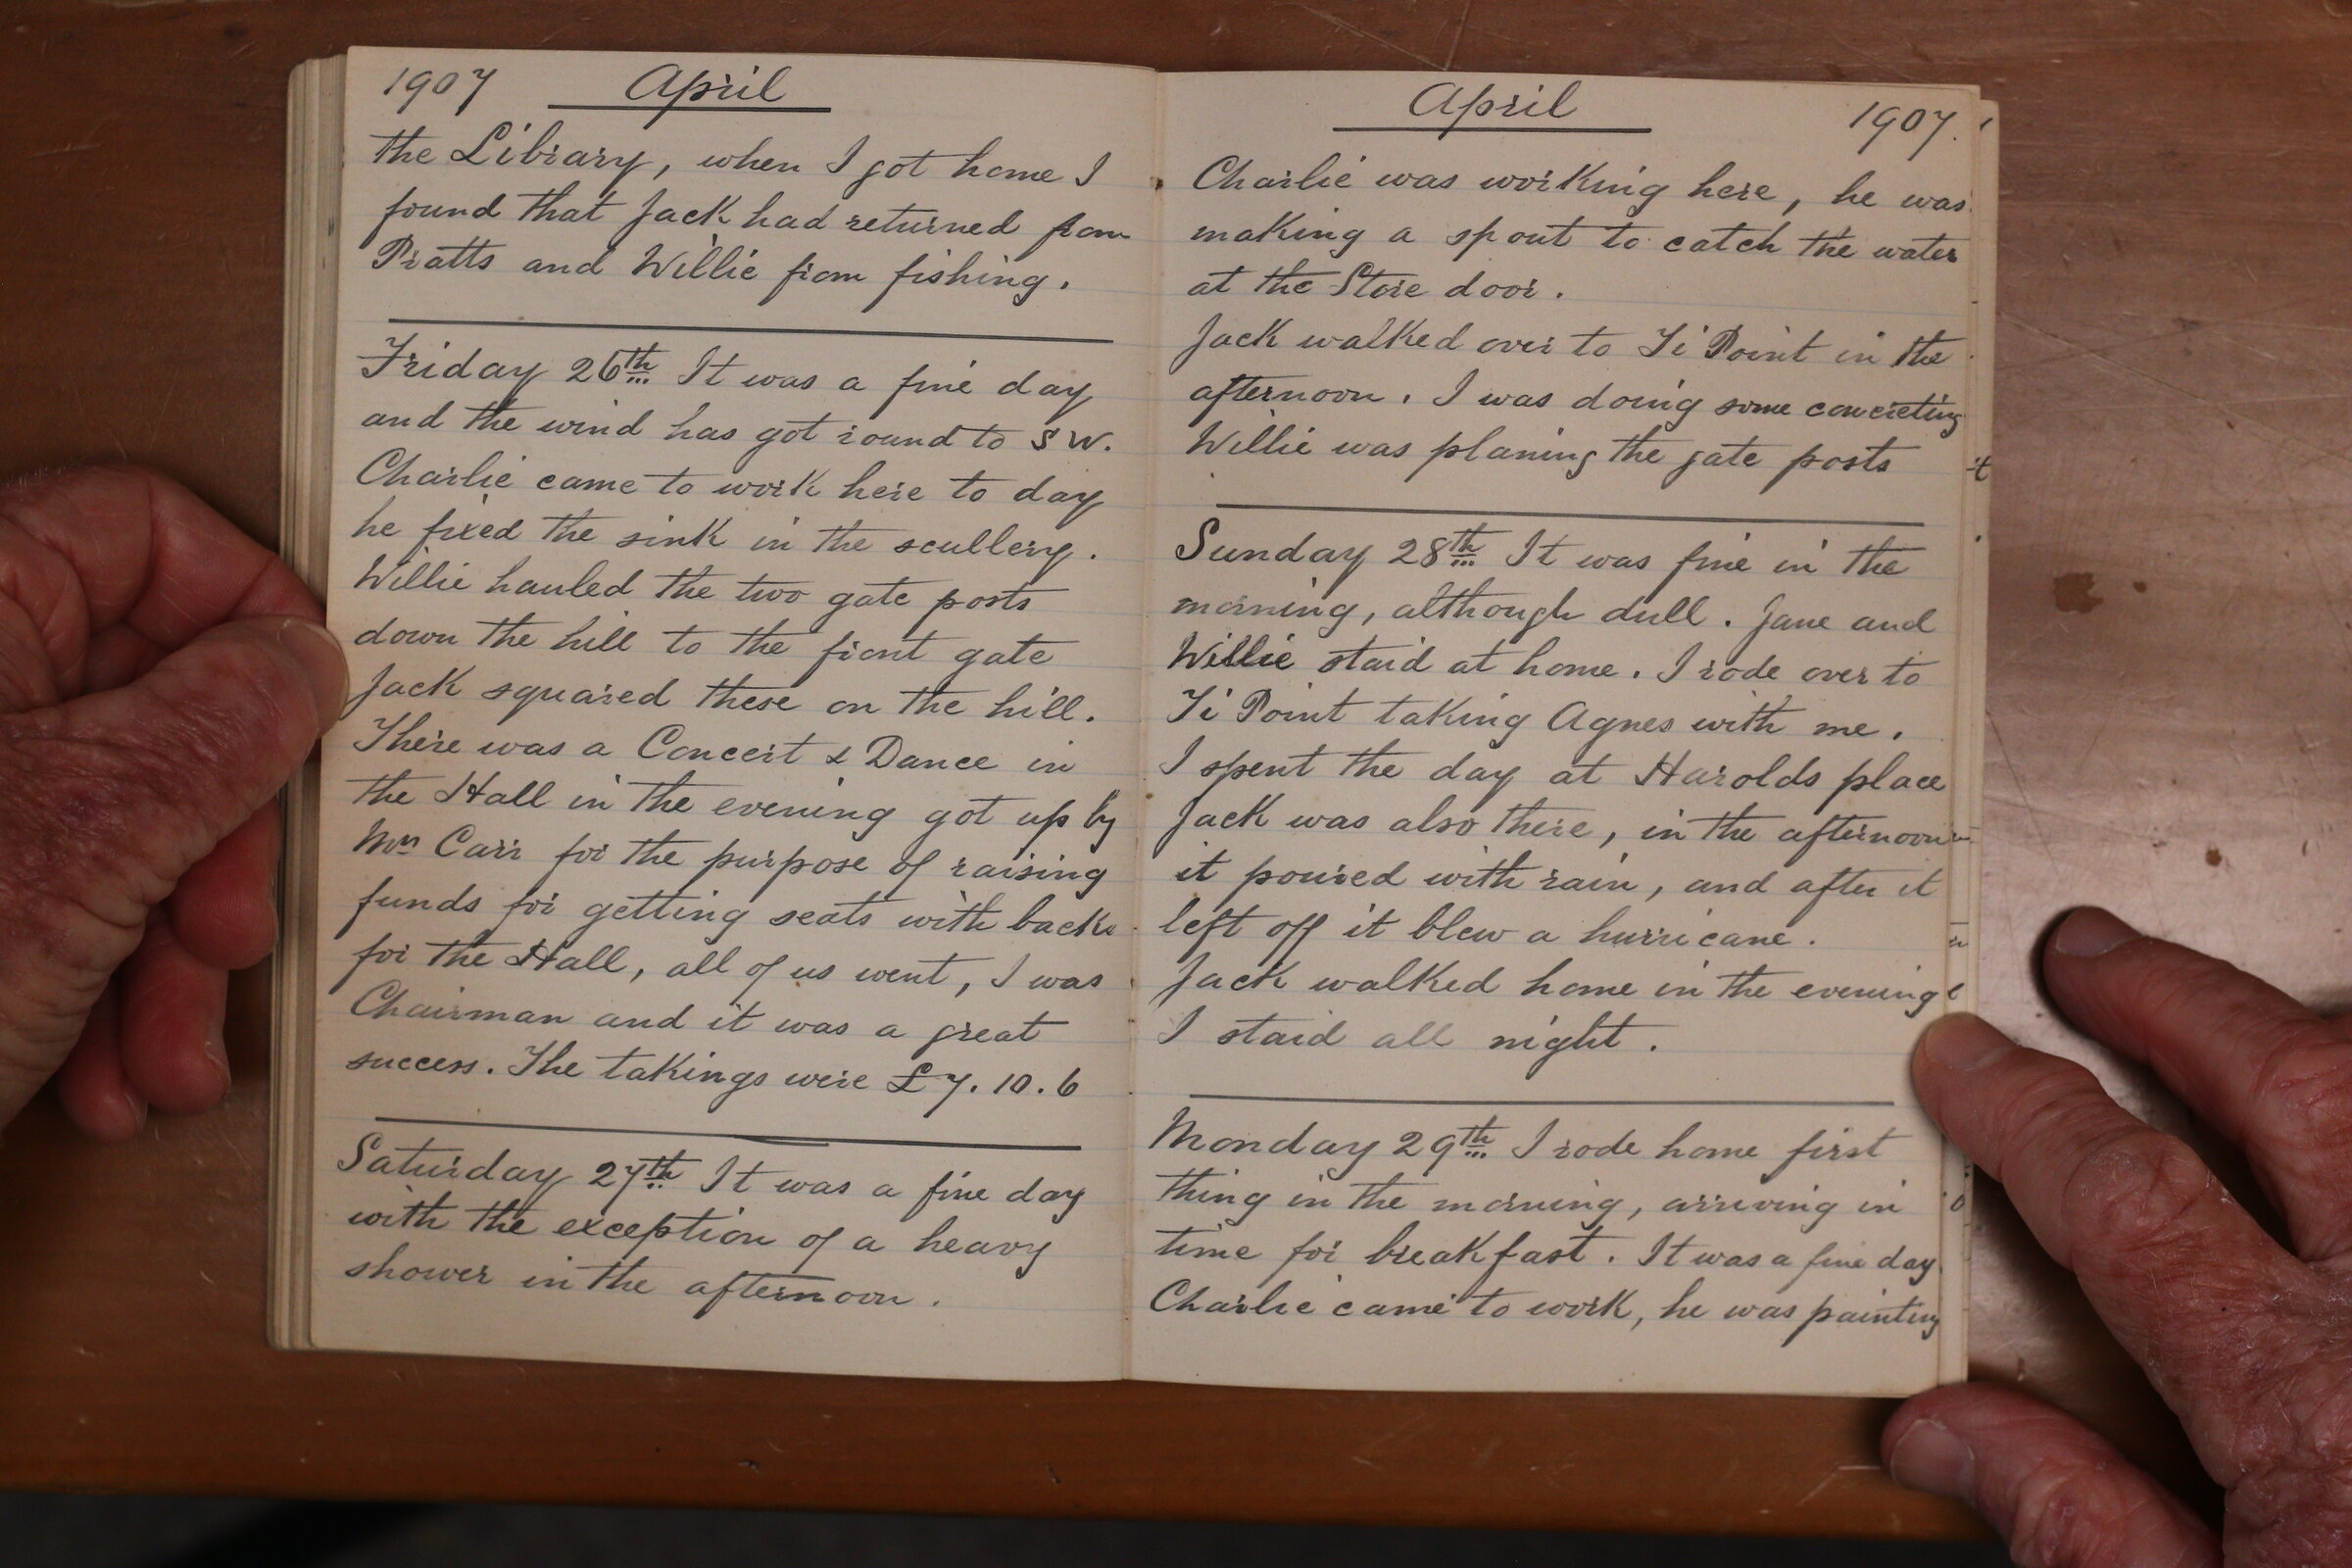 1907 April
the Library, when I got home I
found that Jack had returned from
Pratts and Willie from fishing.
Friday 26th It was a fine day
and the wind has got round to S W.
Charlie came to work here to day
he fixed the sink in the scullery.
Willie hauled the two gate posts
down the hill to the front gate
Jack squared these on the hill.
There was a Concert & Dance in
the Hall in the evening got up by
Mrs Carr for the purpose of raising
funds for getting seats with backs
for the Hall, all of us went, I was
Chairman and it was a great
success. The takings were £7.10.6
Saturday 27th It was a fine day
with the exception of a heavy
shower in the afternoon.
April 1907.
Charlie was working here, he was
making a spout to catch the water
at the Store door.
Jack walked over to Ti Point in the
afternoon. I was doing some concreting
Willie was planing the gate posts
Sunday 28th It was fine in the
morning, although dull. Jane and
Willie staid at home. I rode over to
Ti Point taking Agnes with me.
I spent the day at Harolds place
Jack was also there, in the afternoon
it poured with rain, and after it
left off it blew a hurricane.
Jack walked home in the evening
I staid all night.
Monday 29th I rode home first
thing in the morning, arriving in
time for breakfast. It was a fine day
Charlie came to work, he was painting